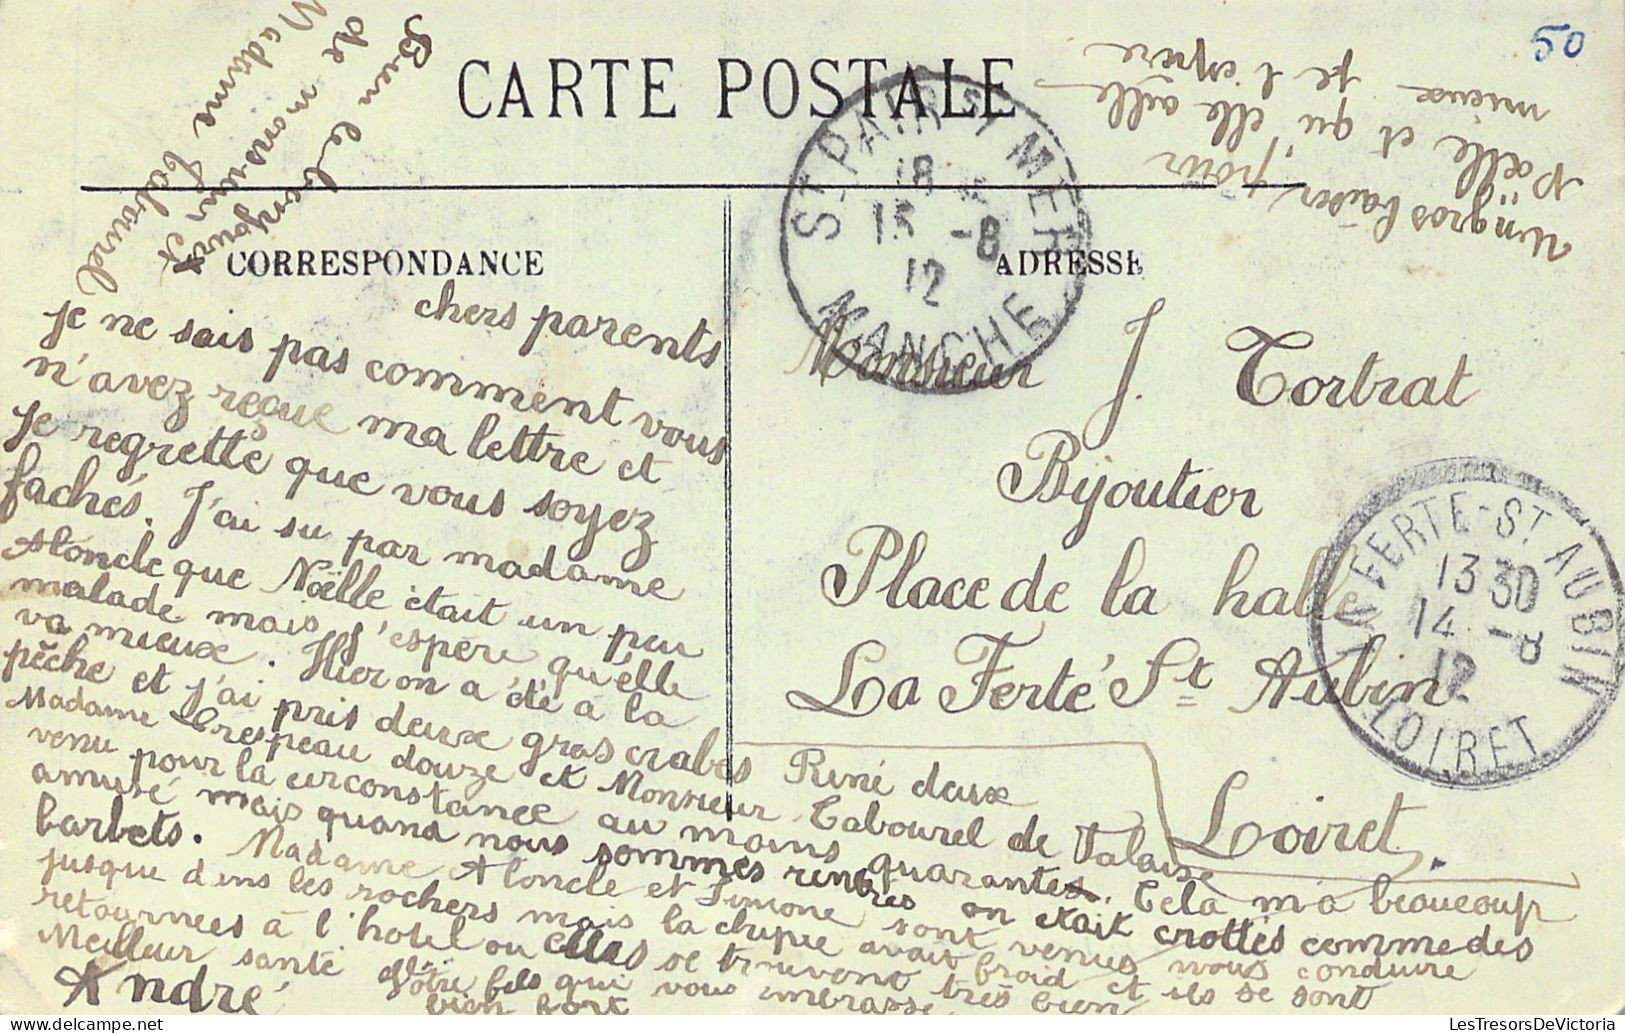 CARTE POSTALE
CORRESPONDANCE
ADRESSE
50
Bien le bonjour
de monsieur et
Madame Tabourel
Un gros baiser pour
Noëlle et qu'elle aille
mieux je l'espère
ST PAIR-S-MER
18
13 -8
12
MANCHE
LA FERTE-ST AUBIN
13 30
14 -8
12
LOIRET
Monsieur J. Tortrat
Bijoutier
Place de la halle
La Ferté St Aubin
Loiret.
chers parents
Je ne sais pas comment vous
n'avez reçue ma lettre et
Je regrette que vous soyez
fachés. J'ai su par madame
Aloncle que Noëlle était un peu
malade mais j'espère qu'elle
va mieux. Hier on a été à la
pêche et j'ai pris deux gros crabes René deux
Madame Crespeau douze et Monsieur Tabourel de Falaise
venu pour la circonstance au moins quarante. Cela m'a beaucoup
amusé mais quand nous sommes rentrés on était crottés comme des
barbets. Madame Aloncle et Simone sont venus nous conduire
jusque dans les rochers mais la chipie avait froid et ils se sont
retournées à l'hotel ou elles se trouvent très bien
Meilleur santé Vôtre fils qui vous embrasse
bien fort
André
LesTresorsDeVictoria